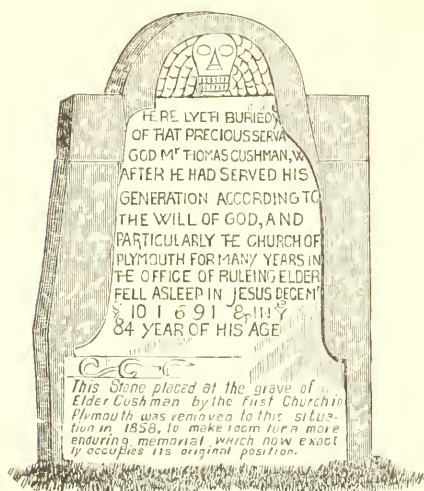 HERE LYETH BURIED
OF THAT PRECIOUS SERVA
GOD Mr THOMAS CUSHMAN, W
AFTER HE HAD SERVED HIS
GENERATION ACCORDING TO
THE WILL OF GOD, AND
PARTICULARLY THE CHURCH OF
PLYMOUTH FOR MANY YEARS IN
THE OFFICE OF RULEING ELDER
FELL ASLEEP IN JESUS DECEMr
Ye 10 1691 & IN Ye
84 YEAR OF HIS AGE
This Stone placed at the grave of
Elder Cushman by the first Church in
Plymouth was removed to this situa-
tion in 1858, to make room for a more
enduring memorial which now exact
ly occupies its original position.